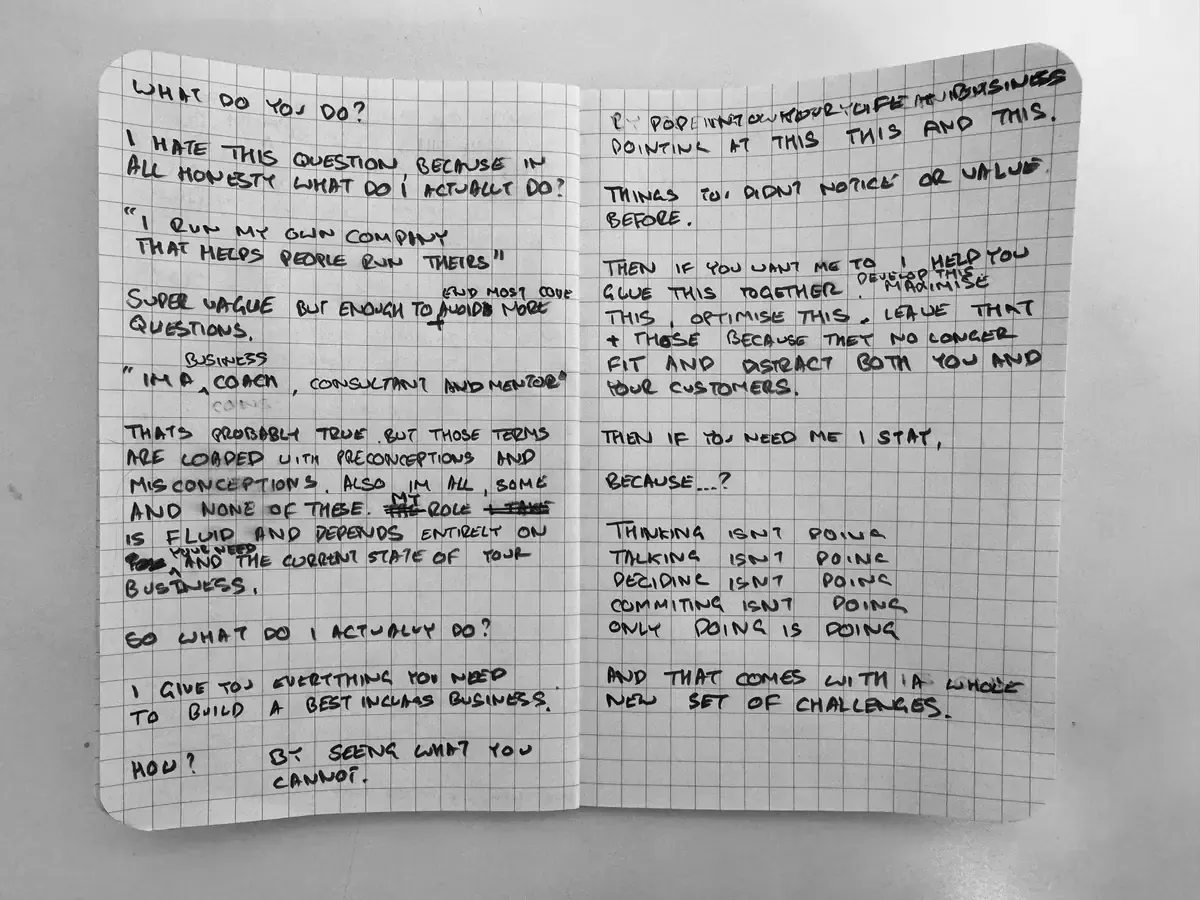 WHAT DO YOU DO?
I HATE THIS QUESTION, BECAUSE IN
ALL HONESTY WHAT DO I ACTUALLY DO?
"I RUN MY OWN COMPANY
THAT HELPS PEOPLE RUN THEIRS"
END MOST
SUPER VAGUE BUT ENOUGH TO AVOID MORE
QUESTIONS.
BUSINESS
"IM A COACH, CONSULTANT AND MENTOR"
CONS
THATS PROBABLY TRUE. BUT THOSE TERMS
ARE LOADED WITH PRECONCEPTIONS AND
MISCONCEPTIONS. ALSO IM ALL, SOME
AND NONE OF THESE. MY ROLE
IS FLUID AND DEPENDS ENTIRELY ON
YOUR NEED
AND THE CURRENT STATE OF YOUR
BUSINESS.
SO WHAT DO I ACTUALLY DO?
I GIVE YOU EVERYTHING YOU NEED
TO BUILD A BEST INCLASS BUSINESS.
HOW? BY SEENG WHAT YOU
CANNOT.
BY YOUR LIFE BUSINESS
POINTING AT THIS THIS AND THIS.
THINGS YOU DIDNT NOTICE OR VALUE
BEFORE.
THEN IF YOU WANT ME TO I HELP YOU
GLUE THIS TOGETHER. DEVELOP THIS. MAXIMISE
THIS, OPTIMISE THIS. LEAVE THAT
+ THOSE BECAUSE THEY NO LONGER
FIT AND DISTRACT BOTH YOU AND
YOUR CUSTOMERS.
THEN IF YOU NEED ME I STAY,
BECAUSE...?
THINKING ISNT DOING
TALKING ISNT DOING
DECIDING ISNT DOING
COMMITING ISNT DOING
ONLY DOING IS DOING
AND THAT COMES WITH A WHOLE
NEW SET OF CHALLENGES.